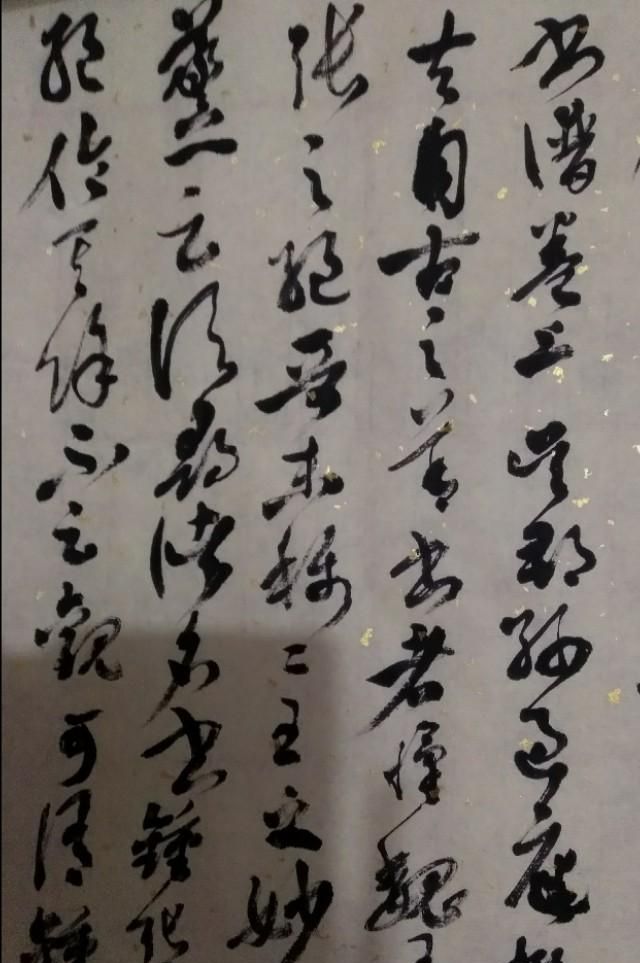 書譜卷上吳郡孫過庭
夫自古之善書者漢魏
張之絕晉末稱二王之妙
羲之云頃尋諸名書鍾張
絕倫其餘不足觀可謂鍾